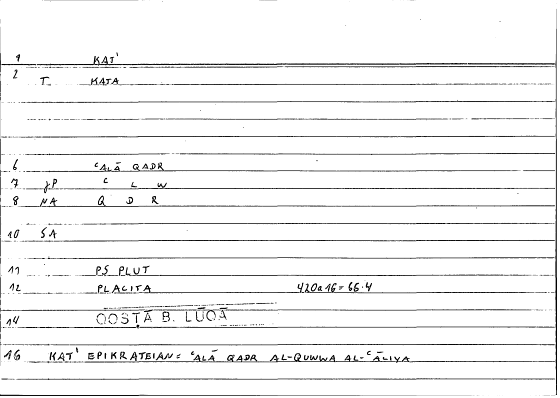 1 KAT'
2 T. KATA
6 ʿALĀ QADR
7 ʿ L W
8 NA Q D R
10 SA
11 PS PLUT
12 PLACITA 420a16=66.4
14 QOSṬĀ B. LŪQĀ
16 KAT' EPIKRATEIAN: ʿALĀ QADR AL-QUWWA AL-ʿĀLIYA